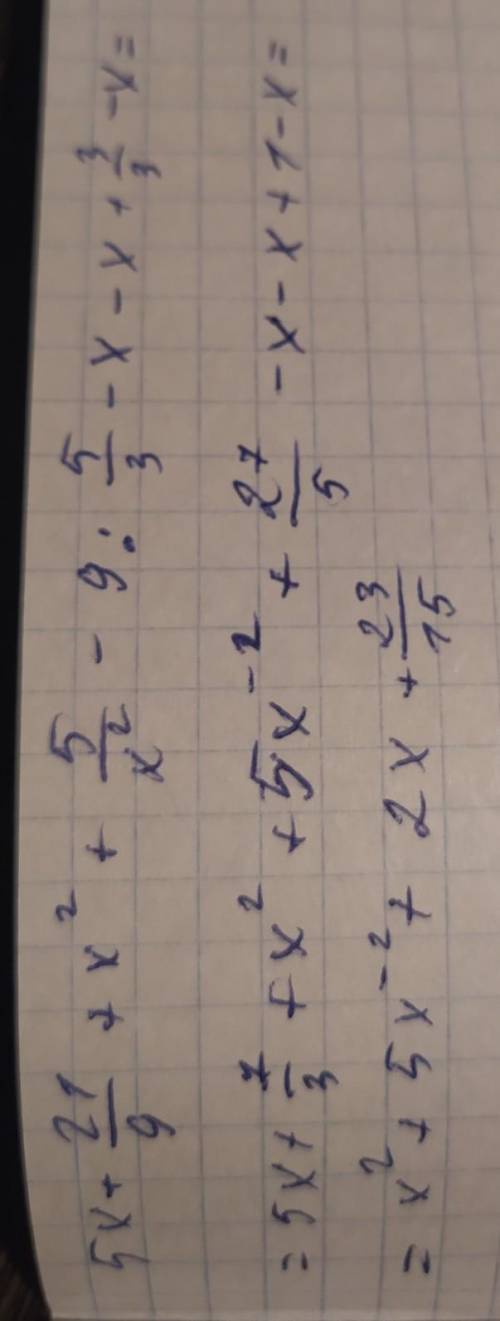 5x + 21/9 + x² + 5/x² - 9 : 5/3 - x - x + 3/3 - x =
= 5x + 7/3 + x² + 5x⁻² + 27/5 - x - x + 1 - x =
= x² + 5x⁻² + 2x + 23/15